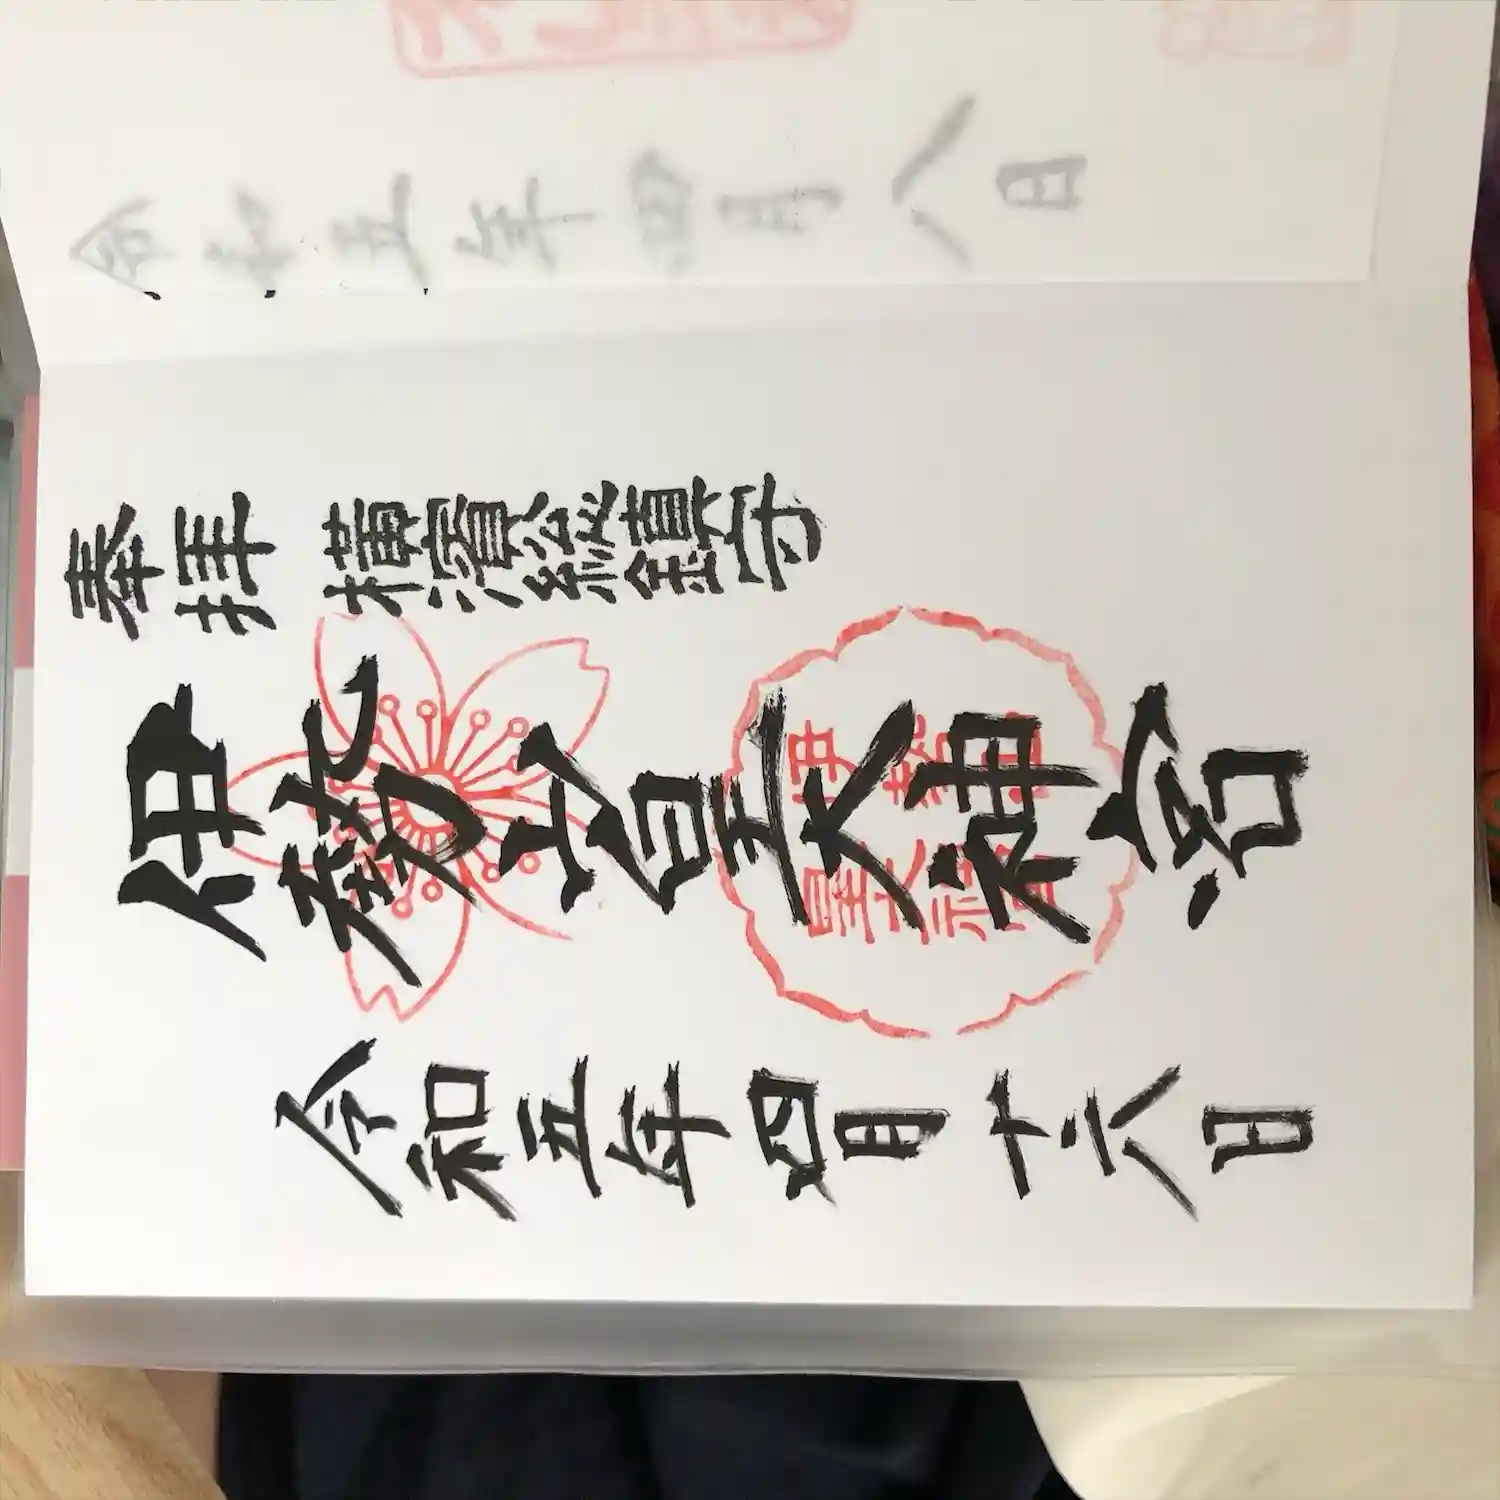 令和五年四月八日
奉拝 横濱総鎮守
伊勢山皇大神宮
伊勢山
皇大神宮
令和五年四月十六日